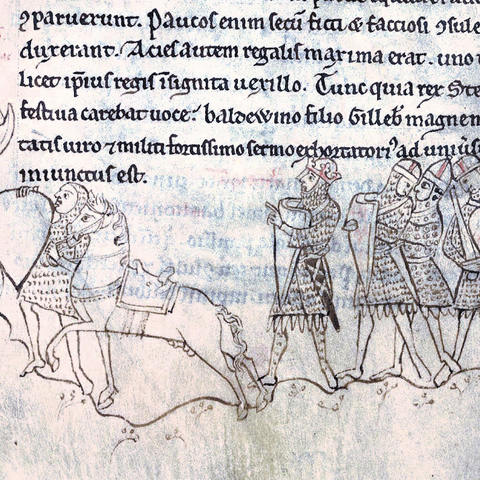 ꝯparuerunt. Paucos enim secū ficti & factiosi ꝯsule
duxerant. Acies autem regalis maxima erat. uno t
licet ip̄ius regis īsignita uexillo. Tunc quia rex Ste
festiua carebat uoce: baldewino filio Gilleb̄ magne n
tatis uiro ⁊ militi fortissimo sermo exhortatori᾽ ad uniūs
iniunctus est.